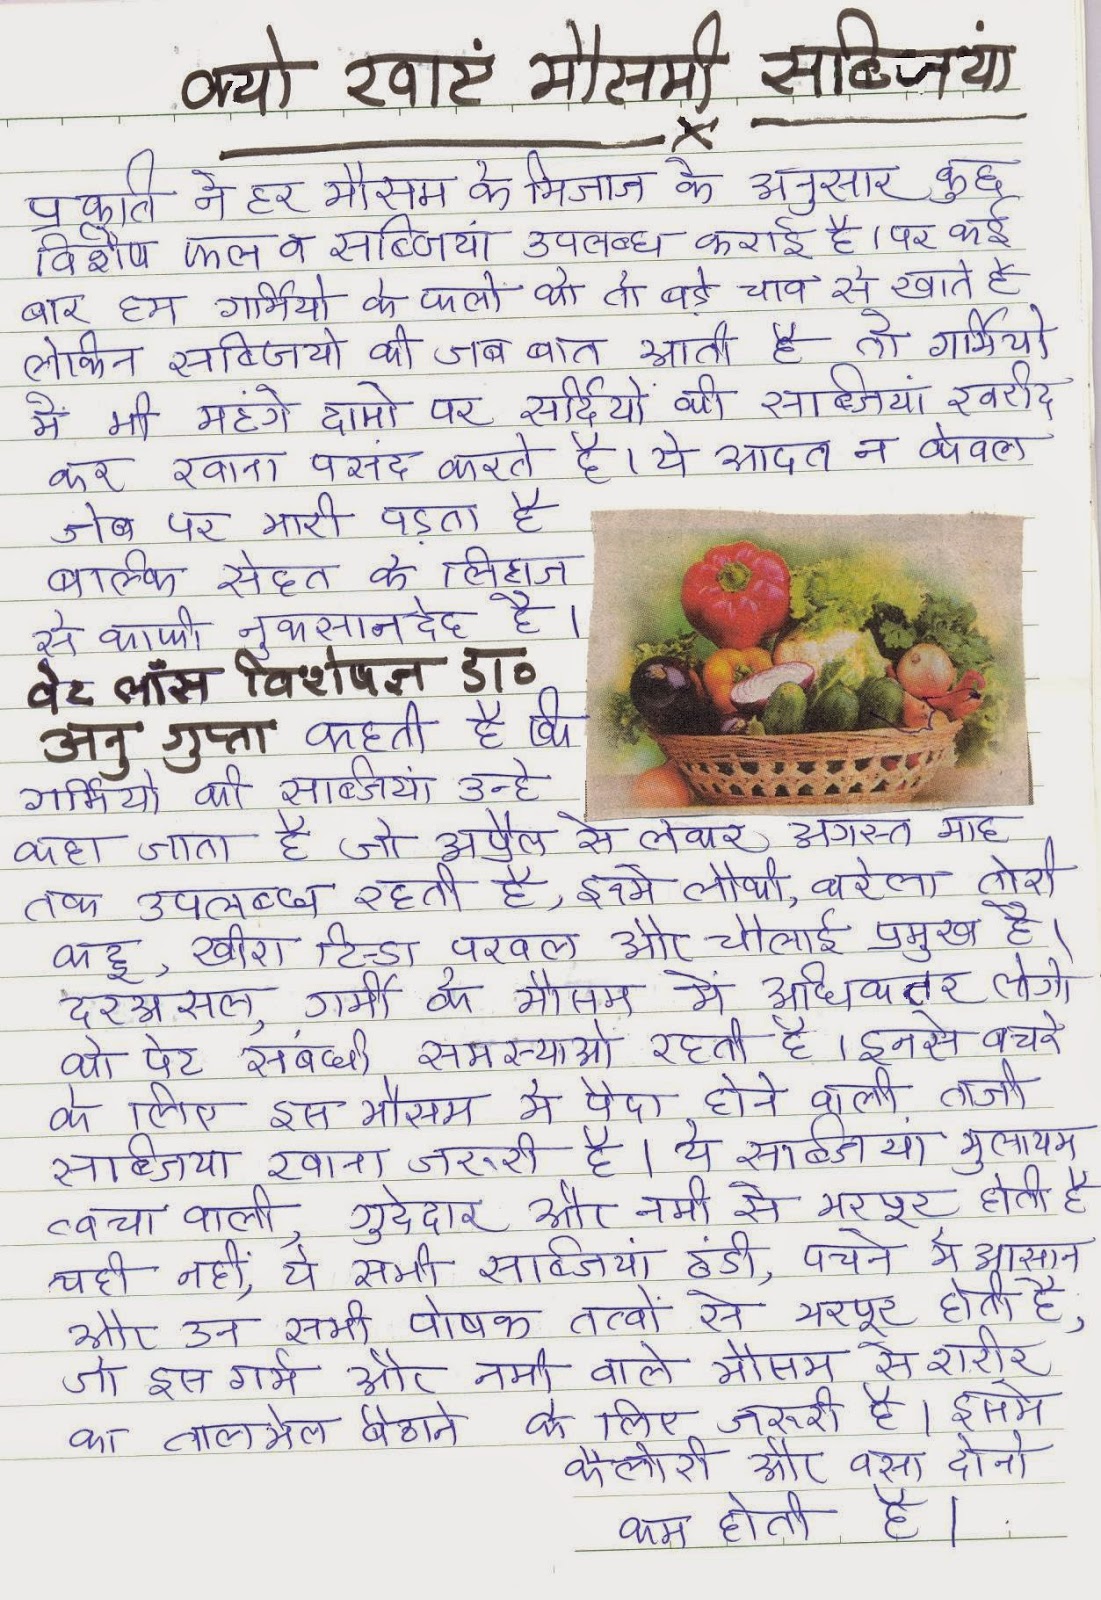 क्यो खाएं मौसमी सब्जियां
प्रकृति ने हर मौसम के मिजाज के अनुसार कुछ
विशेष फल व सब्जियां उपलब्ध कराई है। पर कई
बार हम गर्मियो के फलों को तो बड़े चाव से खाते हैं
लेकिन सब्जियो की जब बात आती है तो गर्मियो
में भी महंगे दामो पर सर्दियों की सब्जियां खरीद
कर खाना पसंद करते है। ये आदत न केवल
जेब पर भारी पड़ता है
बल्कि सेहत के लिहाज
से काफी नुकसानदेह है।
वेट लॉस विशेषज्ञ डा०
अनु गुप्ता कहती है कि
गर्मियो की सब्जियां उन्हे
कहा जाता है जो अप्रैल से लेकर अगस्त माह
तक उपलब्ध रहती है, इनमे लौकी, करेला तोरी
कद्दू, खीरा टिन्डा परवल और चौलाई प्रमुख है।
दरअसल, गर्मी के मौसम में अधिकतर लोगो
को पेट संबधी समस्याओ रहती है। इनसे बचने
के लिए इस मौसम मे पैदा होने वाली ताजी
सब्जिया खाना जरूरी है। ये सब्जियां मुलायम
त्वचा वाली, गुदेदार और नमी से भरपूर होती है
यही नहीं, ये सभी सब्जियां ठंडी, पचने मे आसान
और उन सभी पोषक तत्वों से भरपूर होती है,
जो इस गर्म और नमी वाले मौसम से शरीर
का तालमेल बैठाने के लिए जरूरी है। इसमे
कैलोरी और वसा दोनो
कम होती है।